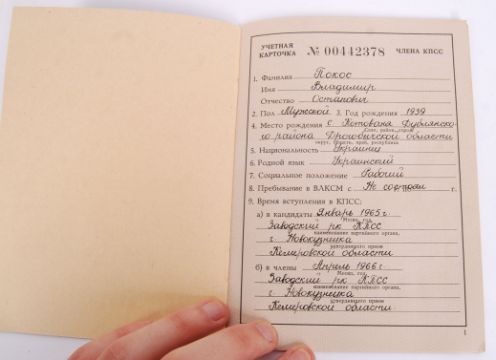 УЧЕТНАЯ КАРТОЧКА № 00442378 ЧЛЕНА КПСС
1. Фамилия Покос
Имя Владимир
Отчество Остапович
2. Пол Мужской 3. Год рождения 1939
4. Место рождения с. Котована Дублянско-
Село, район, город,
го района Дрогобычской области
округ, область, край, республика
5. Национальность Украинец
6. Родной язык Украинский
7. Социальное положение Рабочий
8. Пребывание в ВЛКСМ с Не состоял г.
9. Время вступления в КПСС:
а) в кандидаты Январь 1965 г.
Месяц, год,
Заводский рк КПСС
наименование партийного органа,
г. Новокузнецка
утвердившего прием
Кемеровской области
б) в члены Апрель 1966 г.
Месяц, год,
Заводский рк КПСС
наименование партийного органа,
г. Новокузнецка
утвердившего прием
Кемеровской области
1